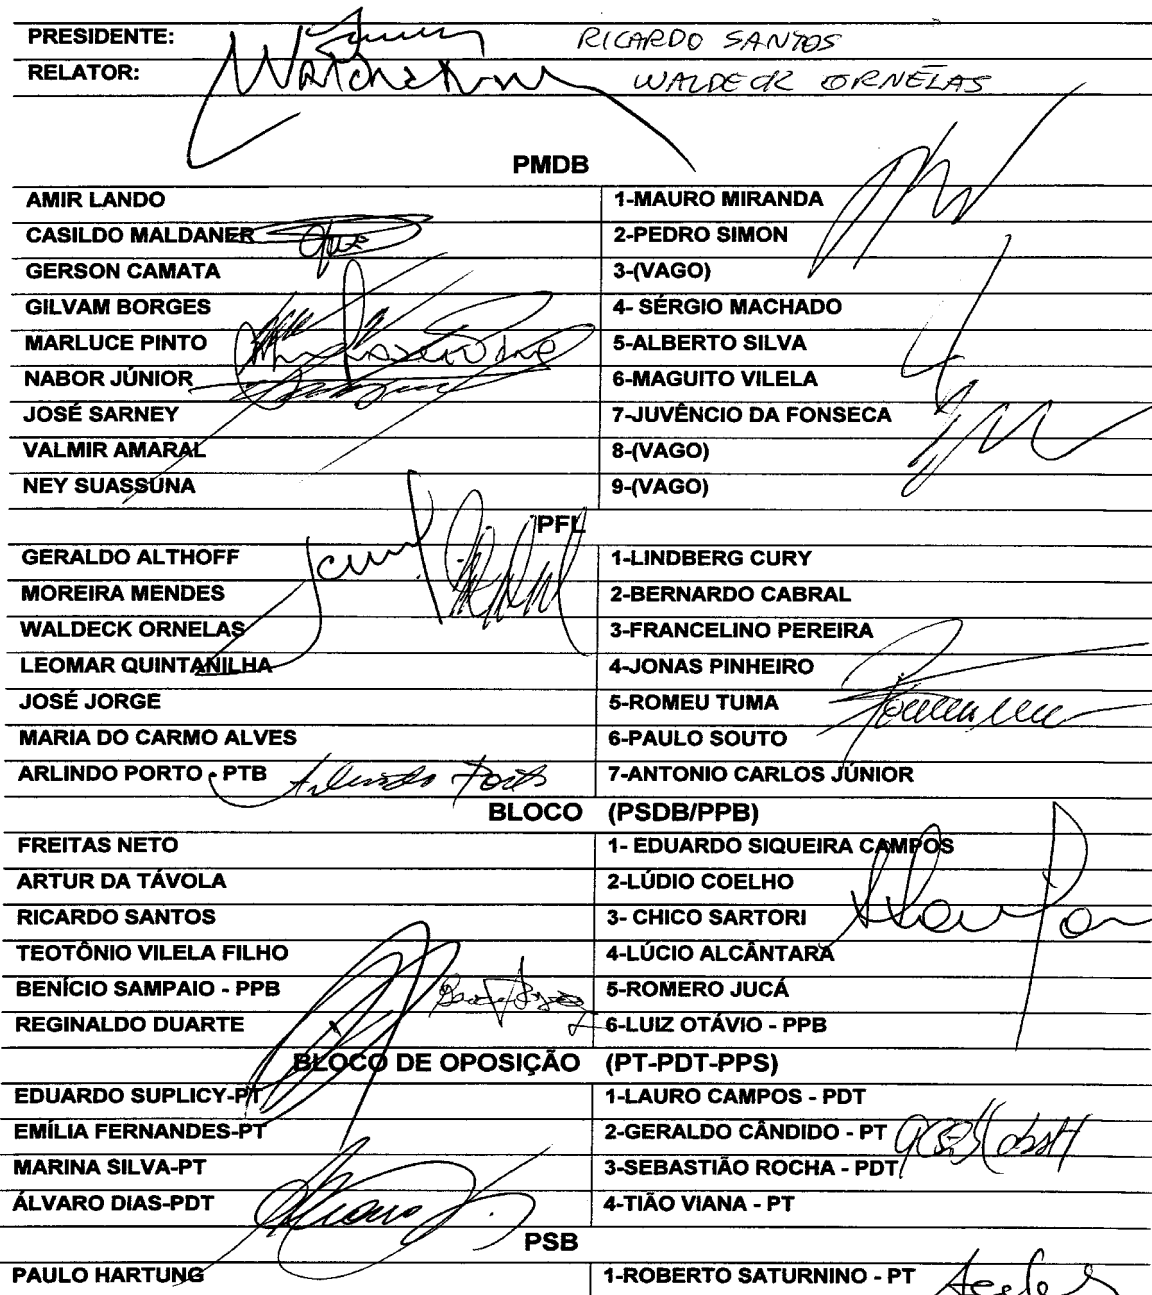 PRESIDENTE: RICARDO SANTOS
RELATOR: WALDECK ORNÉLAS
PMDB
AMIR LANDO 1-MAURO MIRANDA
CASILDO MALDANER 2-PEDRO SIMON
GERSON CAMATA 3-(VAGO)
GILVAM BORGES 4- SÉRGIO MACHADO
MARLUCE PINTO 5-ALBERTO SILVA
NABOR JÚNIOR 6-MAGUITO VILELA
JOSÉ SARNEY 7-JUVÊNCIO DA FONSECA
VALMIR AMARAL 8-(VAGO)
NEY SUASSUNA 9-(VAGO)
PFL
GERALDO ALTHOFF 1-LINDBERG CURY
MOREIRA MENDES 2-BERNARDO CABRAL
WALDECK ORNELAS 3-FRANCELINO PEREIRA
LEOMAR QUINTANILHA 4-JONAS PINHEIRO
JOSÉ JORGE 5-ROMEU TUMA
MARIA DO CARMO ALVES 6-PAULO SOUTO
ARLINDO PORTO - PTB Arlindo Porto 7-ANTONIO CARLOS JÚNIOR
BLOCO (PSDB/PPB)
FREITAS NETO 1- EDUARDO SIQUEIRA CAMPOS
ARTUR DA TÁVOLA 2-LÚDIO COELHO
RICARDO SANTOS 3- CHICO SARTORI
TEOTÔNIO VILELA FILHO 4-LÚCIO ALCÂNTARA
BENÍCIO SAMPAIO - PPB 5-ROMERO JUCÁ
REGINALDO DUARTE 6-LUIZ OTÁVIO - PPB
BLOCO DE OPOSIÇÃO (PT-PDT-PPS)
EDUARDO SUPLICY-PT 1-LAURO CAMPOS - PDT
EMÍLIA FERNANDES-PT 2-GERALDO CÂNDIDO - PT
MARINA SILVA-PT 3-SEBASTIÃO ROCHA - PDT
ÁLVARO DIAS-PDT 4-TIÃO VIANA - PT
PSB
PAULO HARTUNG 1-ROBERTO SATURNINO - PT